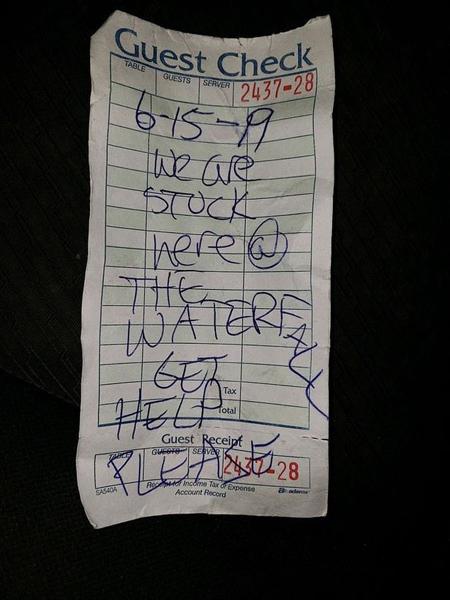 Guest Check
TABLE GUESTS SERVER
2437-28
6-15-19
We are
STUCK
here @
THE
WATERFALL
GET
Tax
HELP
Total
Guest Receipt
TABLE GUESTS SERVER
2437-28
PLEASE
SA540A
Receipt for Income Tax or Expense
Account Record
adams